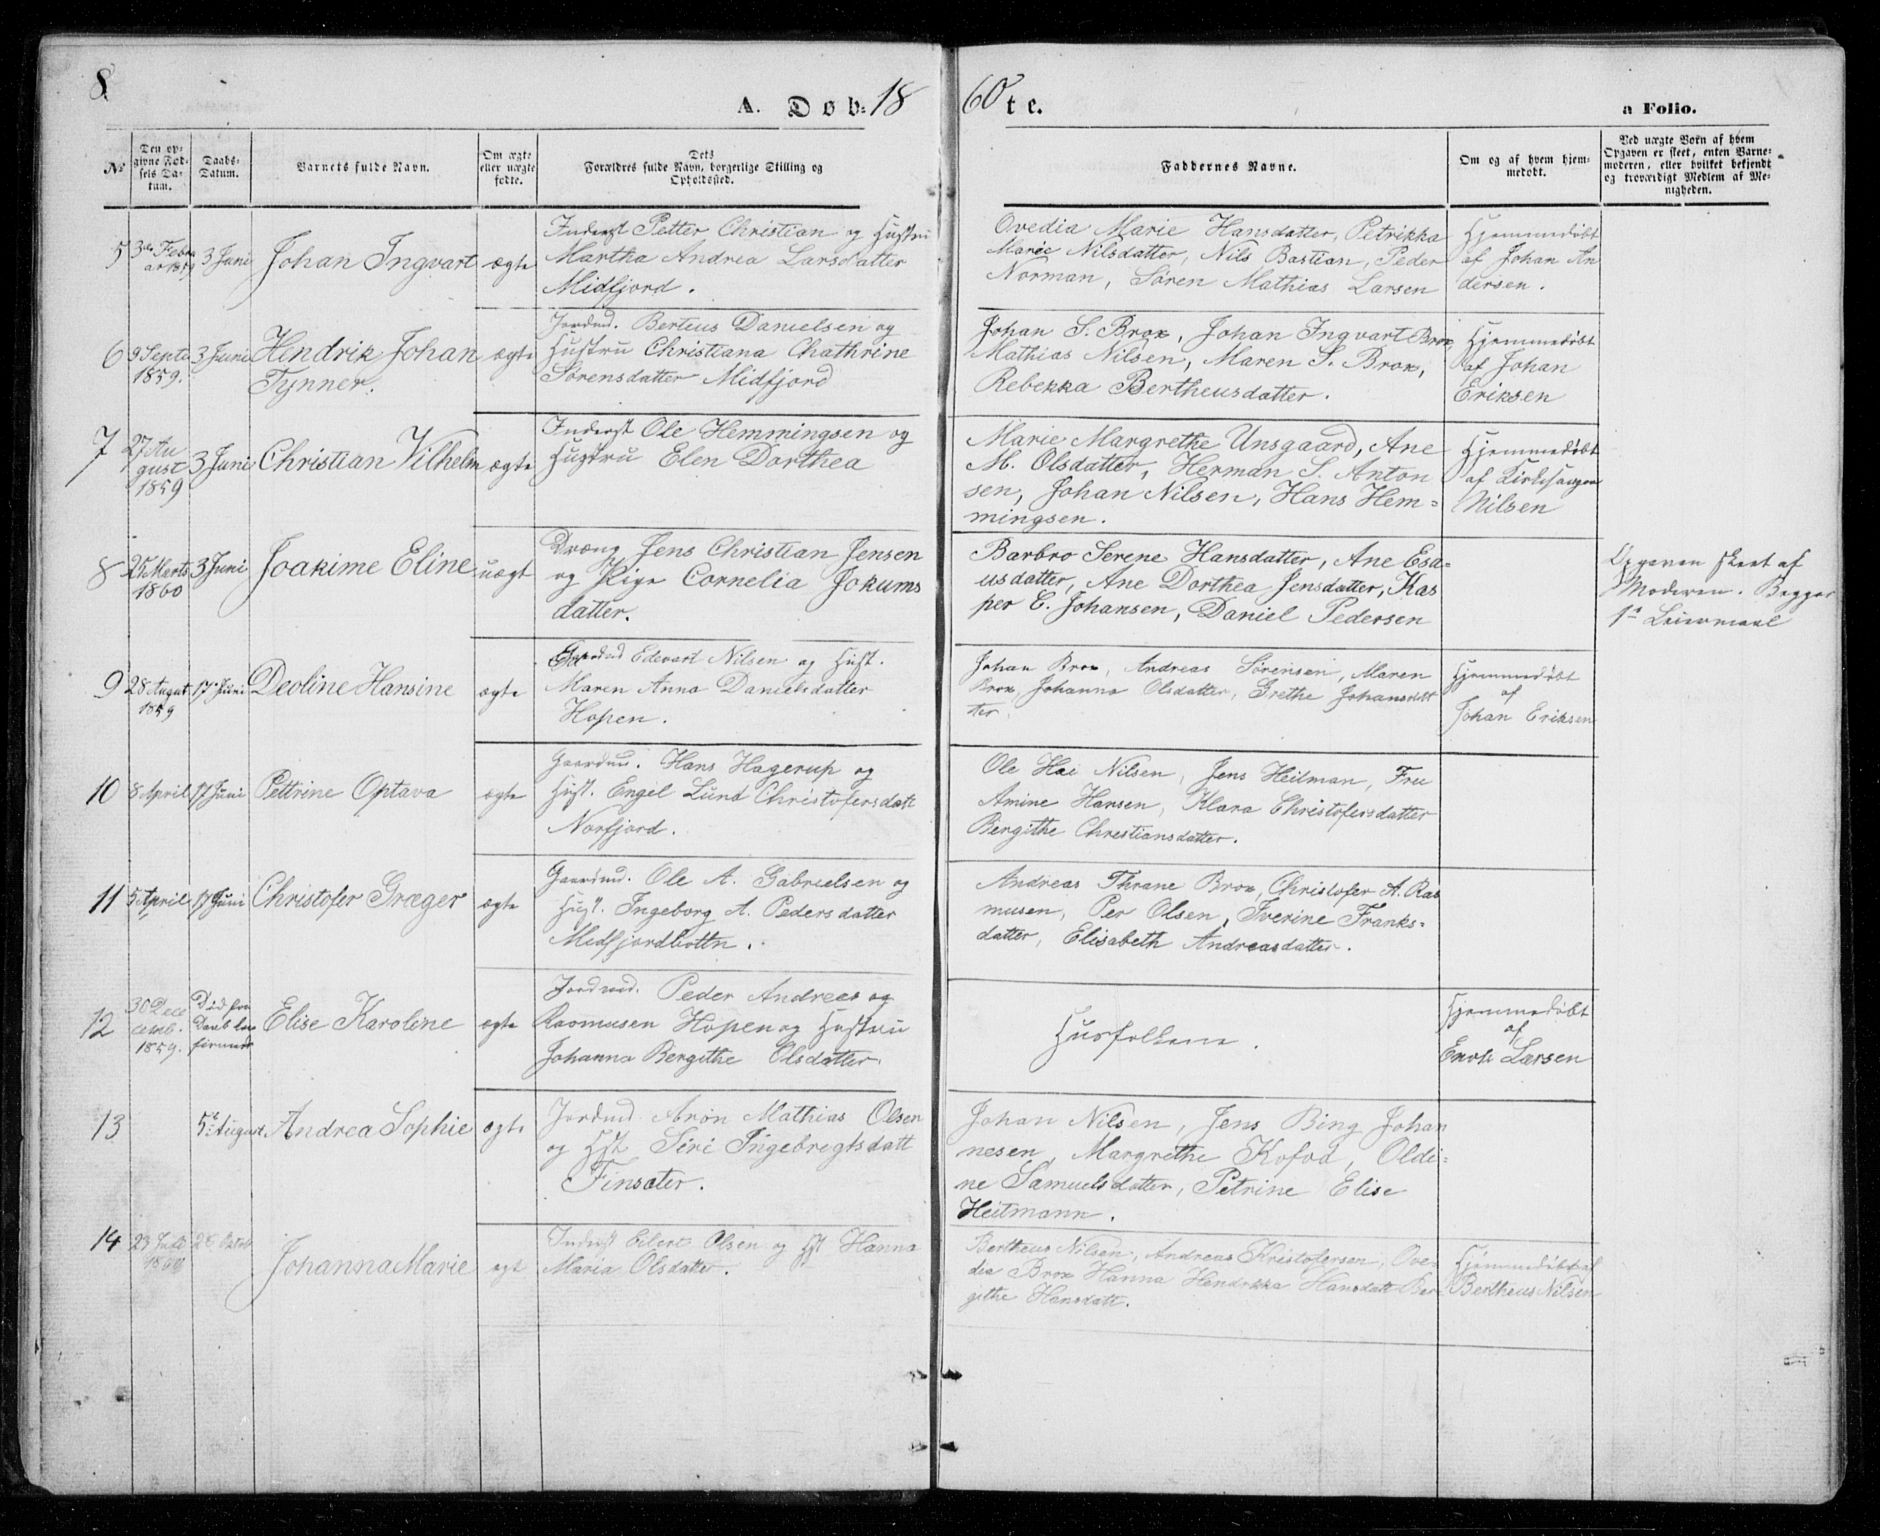 8
A. Døb-18 60 te.
a Folio.
No
Den opgivne Fødsels Datum.
Daabs-Datum.
Barnets fulde Navn.
Om ægte eller uægte fødte.
Dets Forældres fulde Navn, borgerlige Stilling og Opholdssted.
Faddernes Navne.
Om og af hvem hjemmedøbt.
Ved uægte Børn af hvem Opgaven er skeet, enten Barnemoderen, eller hvilket bekjendt og troværdigt Medlem af Menigheden.
5
3 Juni
Johan Ingvart
ægte
Inderst Petter Christian og Hustru
Martha Andrea Larsdatter
Midfjord.
Ovedia Marie Hansdatter, Petrikka
Marie Nilsdatter, Nils Bastian, Peder
Norman, Søren Mathias Larsen
Hjemmedøbt
af Johan An
dersen.
6
9 Septe
1859.
3 Juni
Hendrik Johan
Tynner.
ægte
Jordmd. Berteus Danielsen og
Hustru Christiana Chathrine
Sørensdatter Midfjord
Johan S. Brox, Johan Ingvart Brox,
Mathias Nilsen, Maren S. Brox,
Rebekka Bertheusdatter.
Hjemmedøbt
af Johan
Eriksen
7
27 Au
gust
1859
3 Juni
Christian Vilhelm
ægte
Inderst Ole Hemmingsen og
Hustru Elen Dorthea
Marie Margrethe Unsgaard, Ane
M. Olsdatter, Herman S. Anton
sen, Johan Nilsen, Hans Hem-
mingsen.
Hjemmedøbt
af Kirkesanger
Nilsen
8
25 Marts
1860
3 Juni
Joakime Eline
uægt
Dræng Jens Christian Jensen
og Pige Cornelia Jokums
datter.
Barbro Serene Hansdatter, Ane Esa-
usdatter, Ane Dorthea Jensdatter, Kas
per E. Johansen, Daniel Pedersen
Opgaven skeet af
Moderen. Begges
1ste Leiermaal
9
28 August
1859
17 Juni
Deoline Hansine
ægte
Edevart Nilsen og Hust.
Maren Anna Danielsdatter
Hopen.
Johan Brox, Andreas Sørensen, Maren
Brox, Johanna Olsdatter, Grethe Johansdat
ter.
Hjemmedøbt
af
Johan Eriksen
10
8 April
17 Juni
Pettrine Optava
ægte
Gaardm. Hans Hagerup og
Hust. Engel Lund Christofersdatt
Norfjord.
Ole Hai Nilsen, Jens Heitman, Fru
Amine Hansen, Klara Christofersdatter
Bergithe Christiansdatter.
11
5 April
17 Juni
Christofer Græger
ægte
Gaardmd. Ole A. Gabrielsen og
Hust. Ingeborg A. Pedersdatter
Midfjordbottn.
Andreas Thrane Brox, Christofer A. Ras
musen, Per Olsen, Iverine Franks-
datter, Elisabeth Andreasdatter.
12
30 Dece
cemb.
1859.
Død før
Elise Karoline
ægte
Jordmd. Peder Andreas og
Rasmusen Hopen og Hustru
Johanna Bergithe Olsdatter.
Husfolkene.
Hjemmedøbt
af
Enok Larsen
13
5t August.
Andrea Sophie
ægte
Jordmd. Aron Mathias Olsen
og Hst Siri Ingebregtsdatt
Finsæter.
Johan Nilsen, Jens Bing Johan
nesen, Margrethe Kofod, Oldi-
ne Samuelsdatter, Petrine Elise
Heitmann.
14
23 Juli
1860
28 Oktob
Johanna Marie
ægt
Inderst Eilert Olsen og Hst Hanna
Maria Olsdatter.
Bertheus Nilsen, Andreas Kristofersen, Ove-
dia Brox Hanna Hendrikka Hansdatt Ber-
githe Hansdatt.
Hjemmedøbt af
Bertheus Nilsen